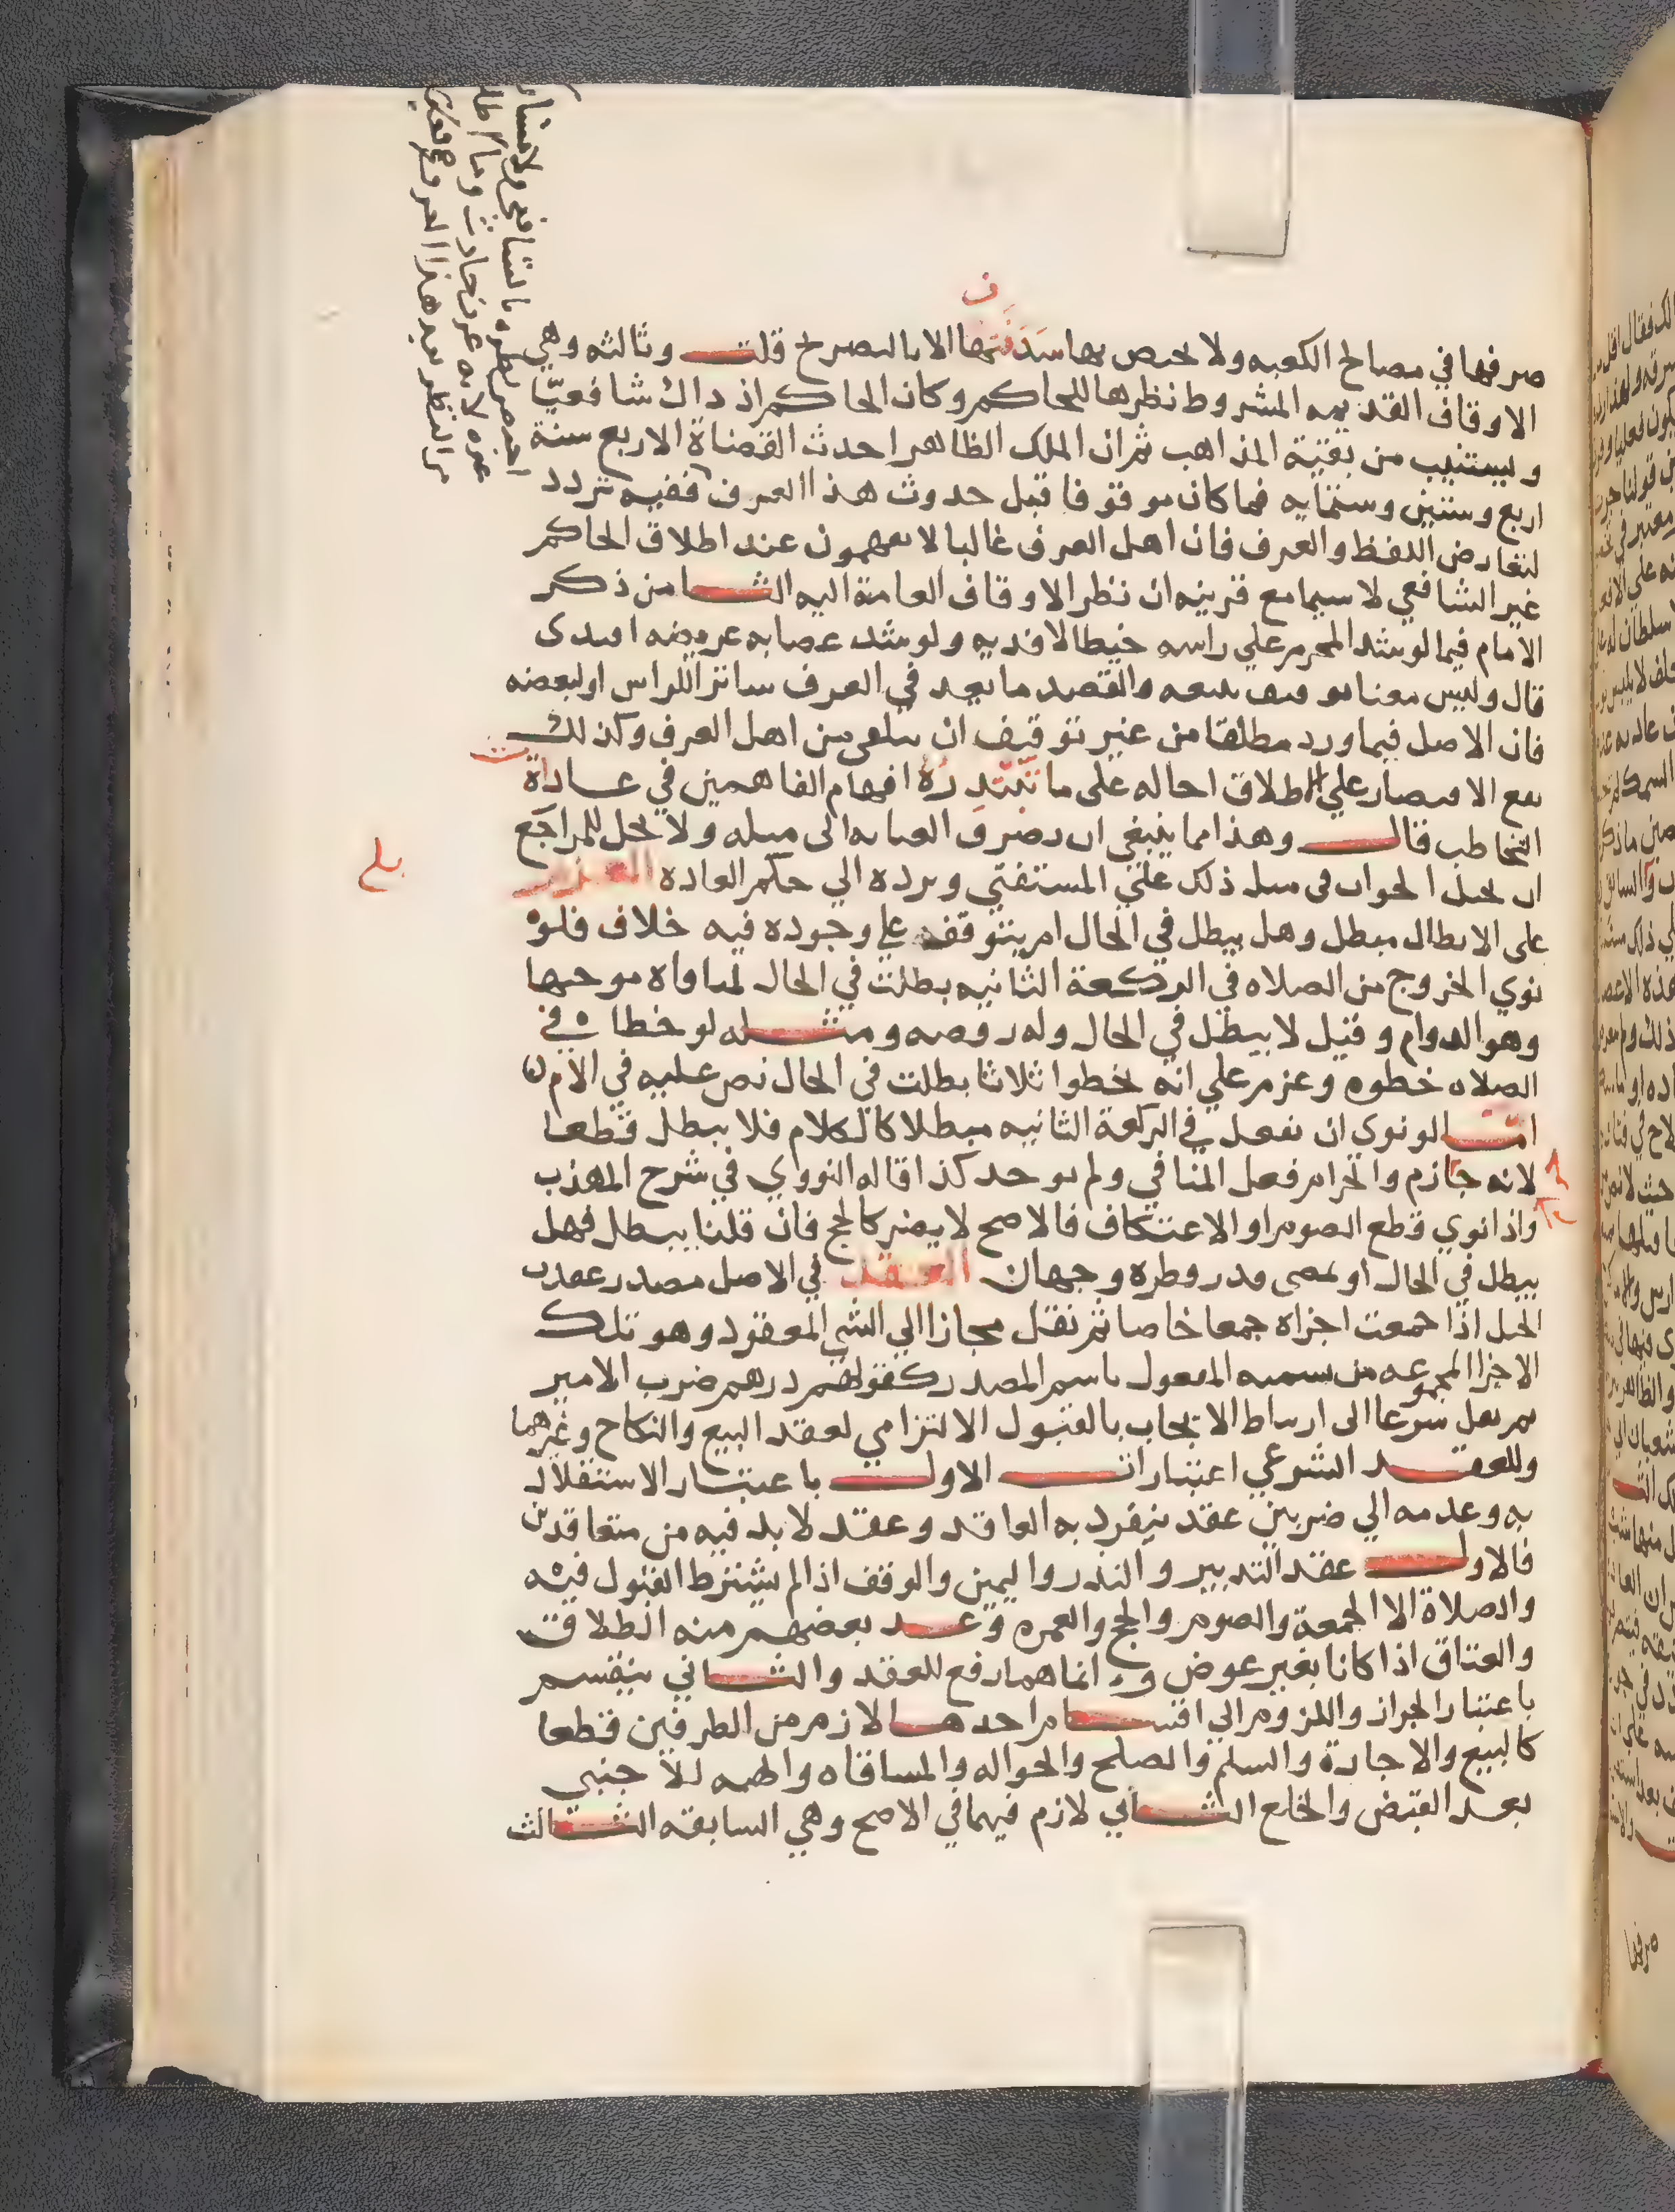 صرفها في مصالح الكعبه ولا يختص بها سدنتها الا بالتصريح قلت وثالثه وهي
الاوقاف القديمه المشروط نظرها للحاكم وكان الحاكم اذ ذاك شافعيّا
ويستنيب من بقيّة المذاهب ثم ان الملك الظاهر احدث القضاة الاربع سنة
اربع وستين وستمايه فما كان موقوفا قبل حدوث هذا العرف ففيه تردد
لتعارض اللفظ والعرف فان اهل العرف غالبا لا يفهمون عند اطلاق الحاكم
غير الشافعي لا سيما مع قرينه ان نظر الاوقاف العامة اليه الثامن ذكر
الامام فيما لو شد المحرم على راسه خيطا لا فديه ولو شد عصابه عريضه افتدى
قال وليس معنا توقيف نتبعه والقصد ما يعد في العرف ساترا للراس او لبعضه
فان الاصل فيما ورد مطلقا من غير توقيف ان يتلقى من اهل العرف وكذلك
يقع الاقتصار علي الاطلاق احاله على ما تبتدره افهام الفاهمين في عادات
التخاطب قال وهذا مما ينبغي ان تصرف العنايه الى مثله ولا يحل للمراجع
ان يحيل الجواب في مثل ذلك علي المستفتي ويرده الي حكم العاده العزم
على الابطال مبطل وهل يبطل في الحال ام يتوقف علي وجوده فيه خلاف فلو
نوي الخروج من الصلاه في الركعة الثانيه بطلت في الحال لمنافاه موجبها
وهو الدوام وقيل لا يبطل في الحال وله رفضه ومثله لو خطا في
الصلاه خطوه وعزم علي انه يخطوا ثلاثا بطلت في الحال نص عليه في الام
اما لو نوي ان يفعل في الركعة الثانيه مبطلا كالكلام فلا يبطل قطعا
لانه جازم والحرام فعل المنافي ولم يوجد كذا قاله النووي في شرح المهذب
واذا نوي قطع الصوم او الاعتكاف فالاصح لا يضر كالحج فان قلنا يبطل فهل
يبطل في الحال او بمضي قدر فطره وجهان العقد في الاصل مصدر عقدت
الحبل اذا جمعت اجزاه جمعا خاصا ثم نقل مجازا الي الشي المعقود وهو تلك
الاجزا المجموعه من تسميه المفعول باسم المصدر كقولهم درهم ضرب الامير
ثم نقل شرعا الى ارتباط الايجاب بالقبول الالتزامي لعقد البيع والنكاح وغيرهما
وللعقد الشرعي اعتبارات الاول باعتبار الاستقلال
به وعدمه الي ضربين عقد ينفرد به العاقد وعقد لا بد فيه من متعاقدين
فالاول عقد التدبير والنذر واليمين والوقف اذا لم يشترط القبول فيه
والصلاة الا الجمعة والصوم والحج والعمره وعد بعضهم منه الطلاق
والعتاق اذا كانا بغير عوض وانما هما رفع للعقد والثاني ينقسم
باعتبار الجواز واللزوم الي اقسام احدها لازم من الطرفين قطعا
كالبيع والاجارة والسلم والصلح والحواله والمساقاه والهبه للاجنبي
بعد القبض والخلع الثاني لازم فيهما في الاصح وهي السابقه الثالث
بلغ